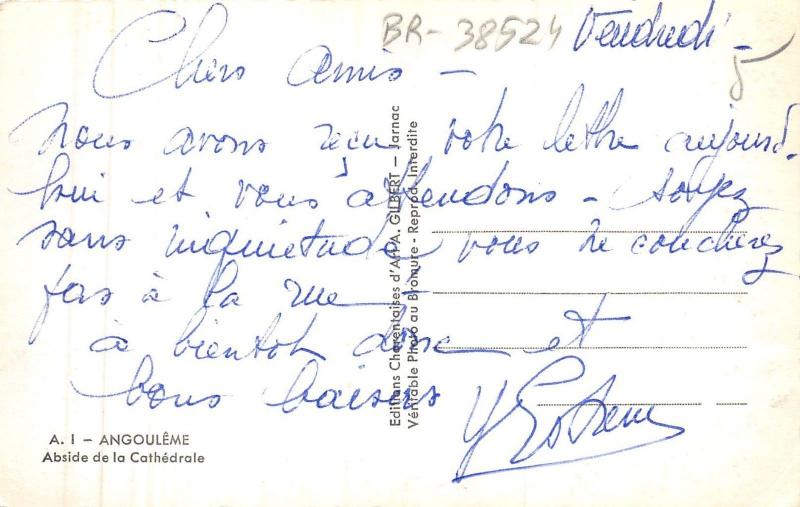 BR-38524
Vendredi -
5
Chers amis -
nous avons reçu votre lettre aujourd-
hui et vous attendons - soyez
sans inquiétude vous ne coucherez
pas à la rue -
à bientôt donc et
bons baisers
Editions Charentaises d'Art A. GILBERT - Jarnac
Véritable Photo au Bromure - Reprod. Interdite
A. I - ANGOULÊME
Abside de la Cathédrale